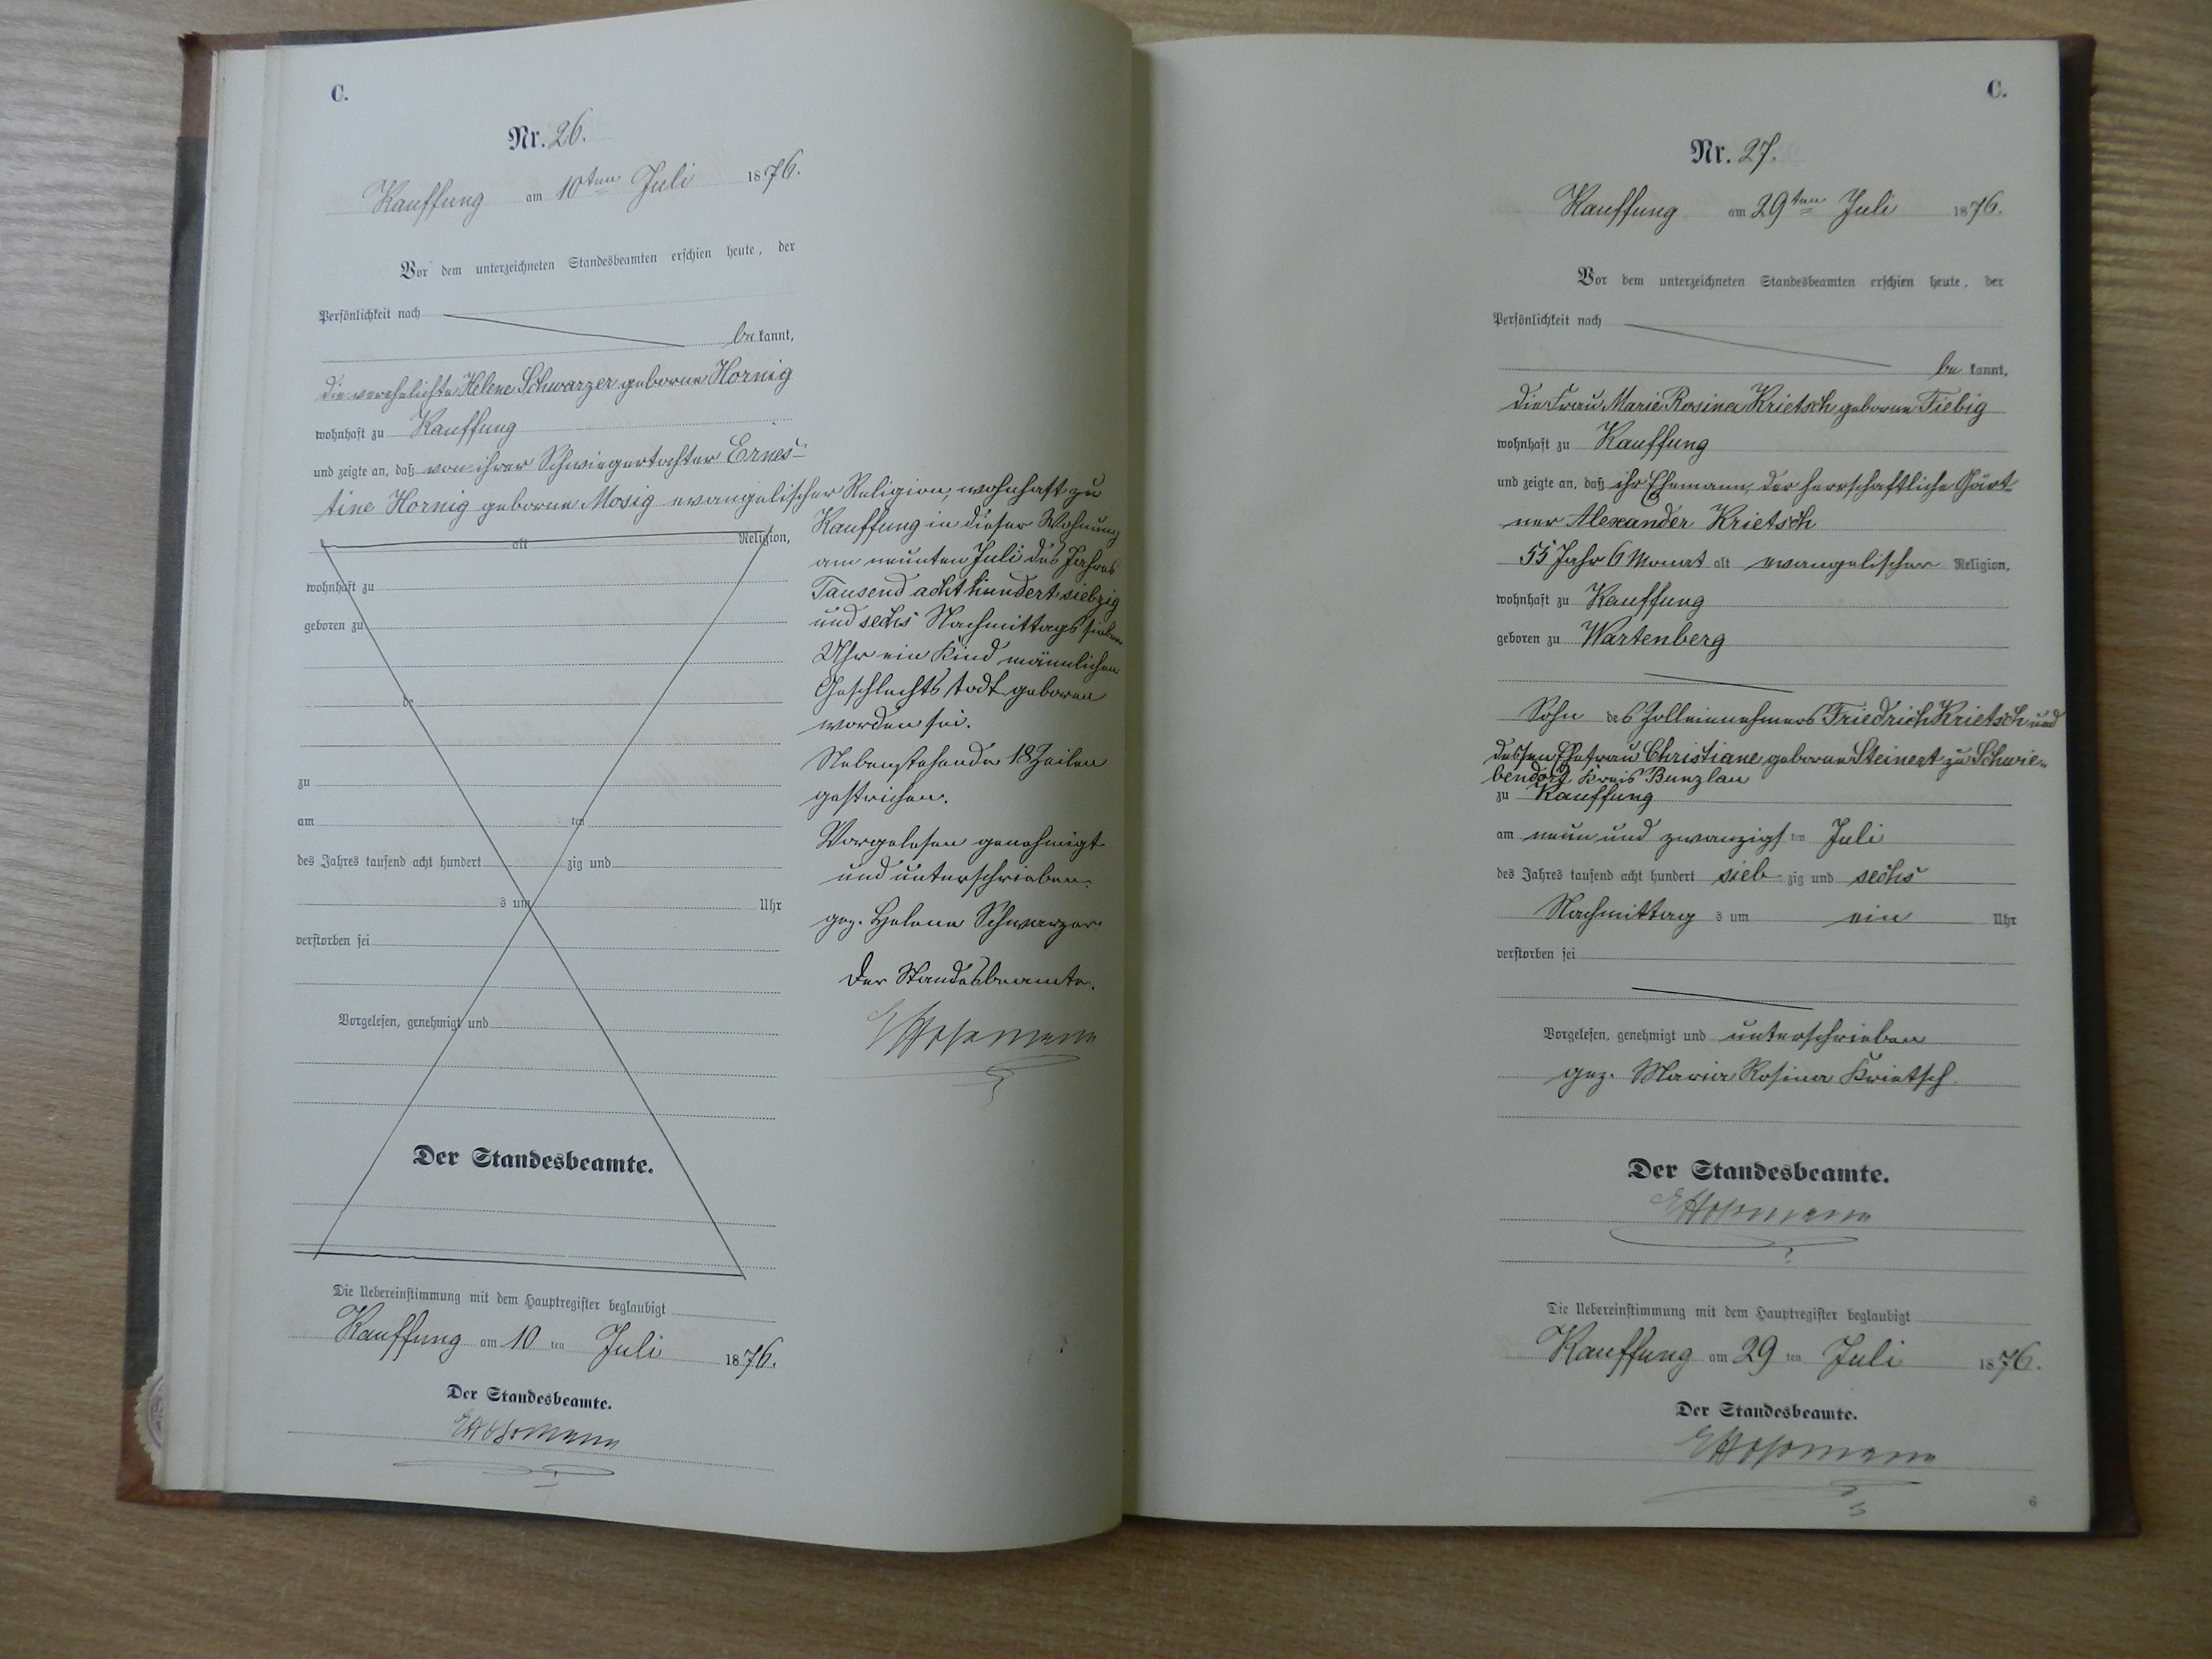 C.
Nr. 26.
Kauffung am 10ten Juli 1876.
Vor dem unterzeichneten Standesbeamten erschien heute, der
Persönlichkeit nach
bekannt,
die verehelichte Helene Schwarzer geborne Hornig
wohnhaft zu Kauffung
und zeigte an, daß von ihrer Schwiegertochter Ernes-
tine Hornig geborne Mosig evangelischer Religion, wohnhaft zu
Kauffung in dieser Wohnung
am neunten Juli des Jahres
Tausend acht hundert siebzig
und sechs Nachmittags sieben
Uhr ein Kind männlichen
Geschlechts todt geboren
worden sei.
Nebenstehende 18 Zeilen
gestrichen.
Vorgelesen genehmigt
und unterschrieben.
gez. Helene Schwarzer
Der Standesbeamte.
alt Religion,
wohnhaft zu
geboren zu
be
zu
am ten
des Jahres tausend acht hundert zig und
s um Uhr
verstorben sei
Vorgelesen, genehmigt und
Der Standesbeamte.
Die Uebereinstimmung mit dem Hauptregister beglaubigt
Kauffung am 10 ten Juli 1876.
Der Standesbeamte.
C.
Nr. 27.
Kauffung am 29ten Juli 1876.
Vor dem unterzeichneten Standesbeamten erschien heute, der
Persönlichkeit nach
bekannt,
die Frau Marie Rosina Krietsch geborne Fiebig
wohnhaft zu Kauffung
und zeigte an, daß ihr Ehemann, der herrschaftliche Gärt-
ner Alexander Krietsch
55 Jahr 6 Monat alt evangelischer Religion,
wohnhaft zu Kauffung
geboren zu Wartenberg
Sohn des Zolleinnehmers Friedrich Krietsch und
dessen Ehefrau Christiane geborne Steinert zu Schwie-
bendorf Kreis Bunzlau
zu Kauffung
am neun und zwanzigsten Juli
des Jahres tausend acht hundert siebzig und sechs
Nachmittags um ein Uhr
verstorben sei
Vorgelesen, genehmigt und unterschrieben
gez. Maria Rosina Krietsch.
Der Standesbeamte.
Die Uebereinstimmung mit dem Hauptregister beglaubigt
Kauffung am 29 ten Juli 1876.
Der Standesbeamte.
6